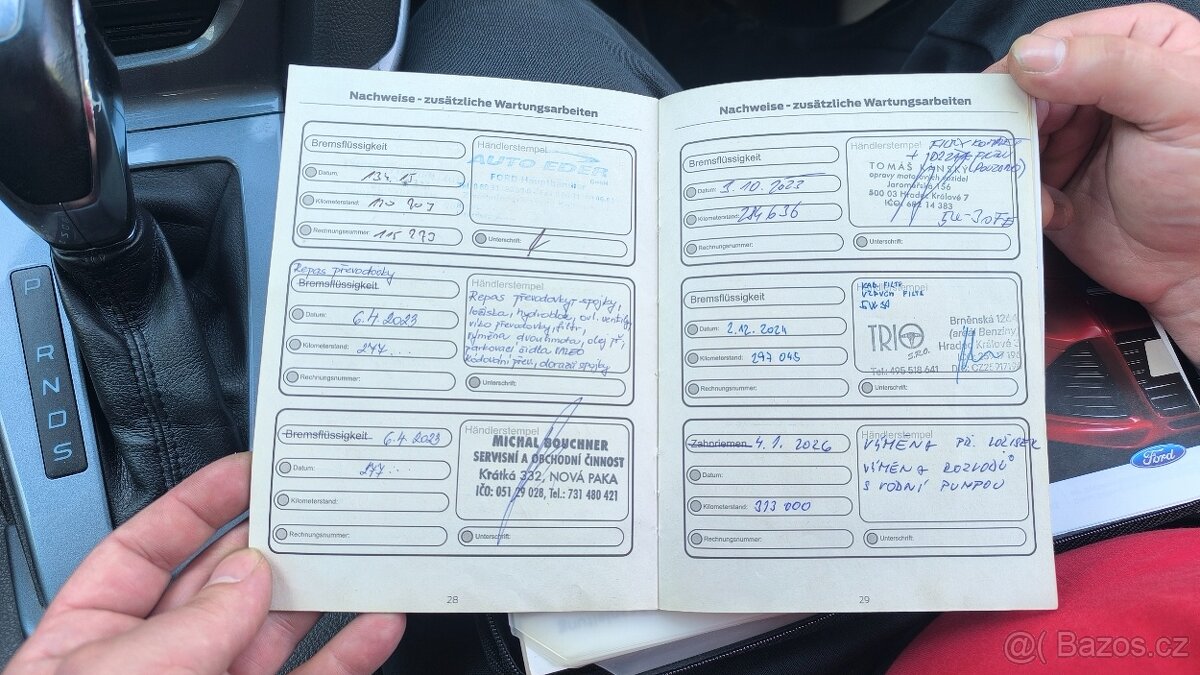 Nachweise - zusätzliche Wartungsarbeiten
Bremsflüssigkeit
Datum: 13.4.15
Kilometerstand: 110 209
Rechnungsnummer: 115 293
Händlerstempel
AUTO EDER
FORD Haupthändler GmbH
Unterschrift:
Repas převodovky
Bremsflüssigkeit
Datum: 6.4.2023
Kilometerstand: 277 . . .
Rechnungsnummer:
Händlerstempel
Repas převodovky - spojky,
ložiska, hydroblok, ovl. ventily,
víko převodovky, filtr,
výměna dvouhmota, olej př,
parkovací čidla,
kódování přev, dorazů spojky
Unterschrift:
Bremsflüssigkeit 6.4.2023
Datum: 277 . . .
Kilometerstand:
Rechnungsnummer:
Händlerstempel
MICHAL BOUCHNER
SERVISNÍ A OBCHODNÍ ČINNOST
Krátká 332, NOVÁ PAKA
IČO: 051 29 028, Tel.: 731 480 421
Unterschrift:
28
Nachweise - zusätzliche Wartungsarbeiten
Bremsflüssigkeit
Datum: 3.10.2023
Kilometerstand: 284 636
Rechnungsnummer:
Händlerstempel
TOMÁŠ KANSKÝ
opravy motorových vozidel
Jaroměřská 156
500 03 Hradec Králové 7
IČO: 682 14 383
5W-30FE
Unterschrift:
Bremsflüssigkeit
Datum: 2.12.2024
Kilometerstand: 297 045
Rechnungsnummer:
Händlerstempel
KAB FILTR
VZDUCH FILTR
TRIO
s.r.o.
Tel.: 495 518 641
Brněnská
(areál Benziny)
Hradec Králové
Unterschrift:
Zahnriemen 4.1.2026
Datum:
Kilometerstand: 313 000
Rechnungsnummer:
Händlerstempel
VÝMĚNA PŘ. LOŽISEK
VÝMĚNA ROZVODŮ
S VODNÍ PUMPOU
Unterschrift:
29
P
R
N
D
S
Ford
@( Bazos.cz